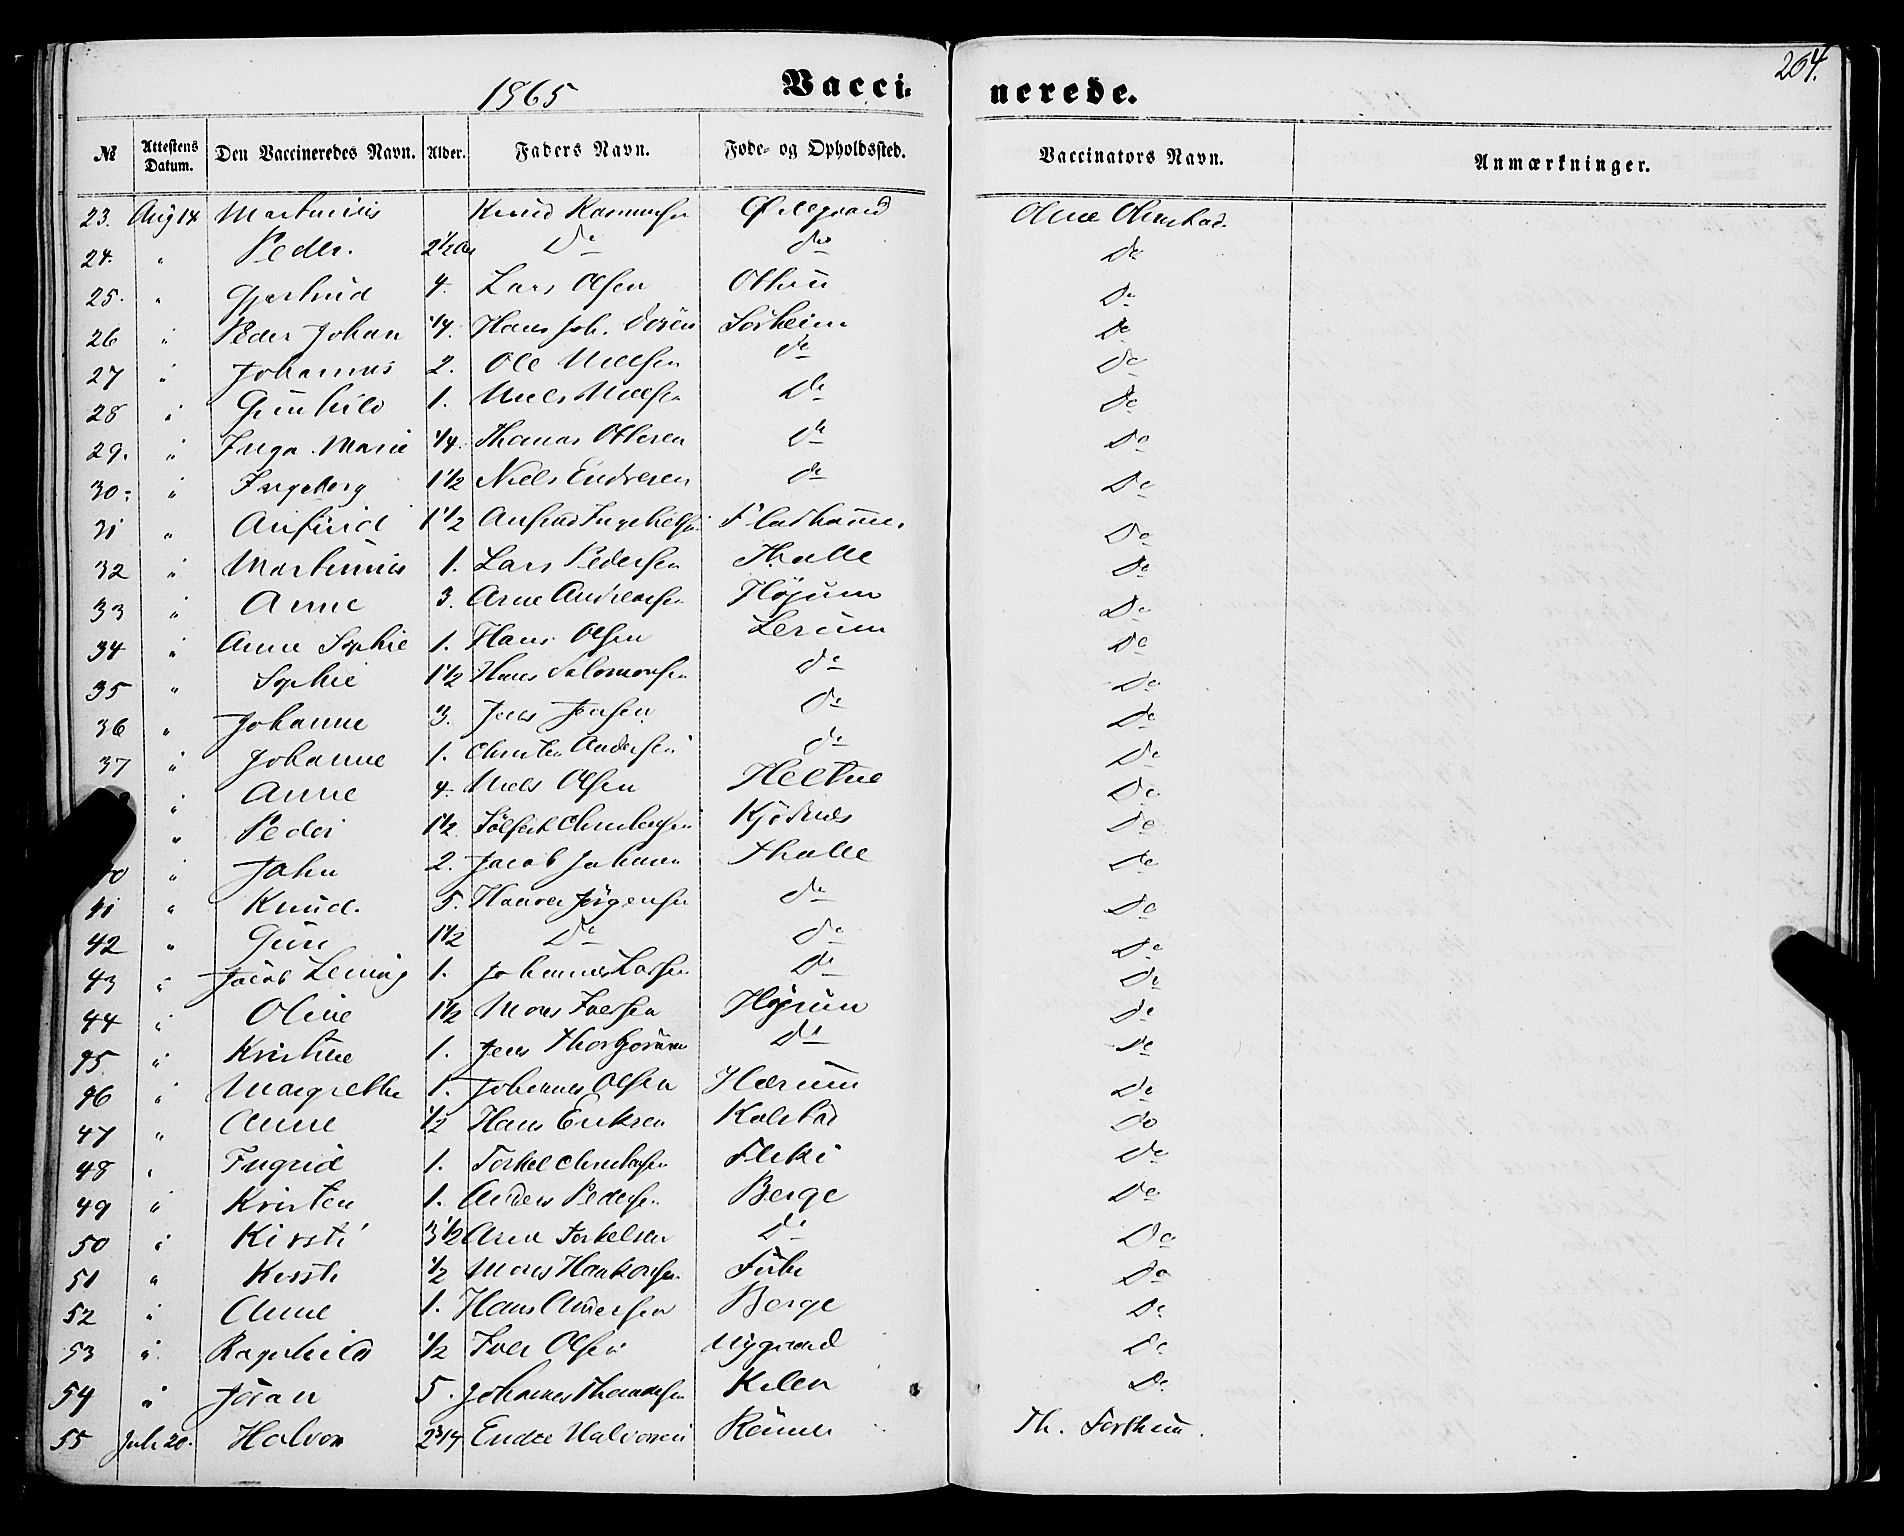 204.
1865 Vacci-nerede.
№ Attestens Datum. Den Vaccineredes Navn. Alder. Faders Navn. Føde- og Opholdssted. Vaccinators Navn. Anmærkninger.
23. Aug 14 Martinus Knud Rasmussen Øvregaard Arne
24. " Peder. 2 1/2 Do do Do
25. " Gjertrud 4. Lars Olsen Ottum Do
26 " Peder Johan 1/4. Hans Joh. Sorheim Do
27 " Johannes 2. Ole Nielsen do Do
28 " Gunhild 1. Niels Nielsen Do Do
29. " Inga Marie 1/4. Thomas Ottesen do Do
30. " Ingeborg 1 1/2 Niels Endresen do Do
31 " Anfind 1 1/2 Anfind Fladhamer Do
32 " Martinus 1. Lars Pedersen Hvalle Do
33 " Anne 3. Arne Andreasen Høyum Do
34 " Anne Sophie 1. Hans Olsen Lerum Do
35 " Sophie 1 1/2 Hans Salomonsen do Do
36 " Johanne 3. Jens Jensen do Do
37 " Johanne 1. Christen Andersen do Do
" Anne 4. Niels Olsen Heltne Do
" Peder 1 1/2 Kjødnes Do
40 " John 2. Jacob Johannes Hvalle Do
41 " Knud. 5. Jørgensen do Do
42 " Guri 1 1/2 Do do Do
43 " Jacob 1. Johannes Larsen Do Do
44 " Oline 1 1/2 Mons Iversen Høyum Do
45 " Kristine 1. Jens do Do
46 " Margrethe 1. Johannes Olsen Hærum Do
47 " Anne 1/2 Hans Eriksen Kalstad Do
48 " Ingrid 1. Torkel Christensen Do
49 " Kristen 1. Anders Pedersen Berge Do
50 " Kirsti 3 1/2 Arne Torkelsen do Do
51 " Kirsti 1/2 Mons Haakonsen Do
52 " Anne 1. Hans Andersen Berge Do
53 " Ragnhild 1/2 Iver Olsen Nygaard Do
54 " Jøran 5. Johannes Thomassen Kilen Do
55 Juli 20. Halvor 2 3/4 Endre Halvorsen Rønnei Th.